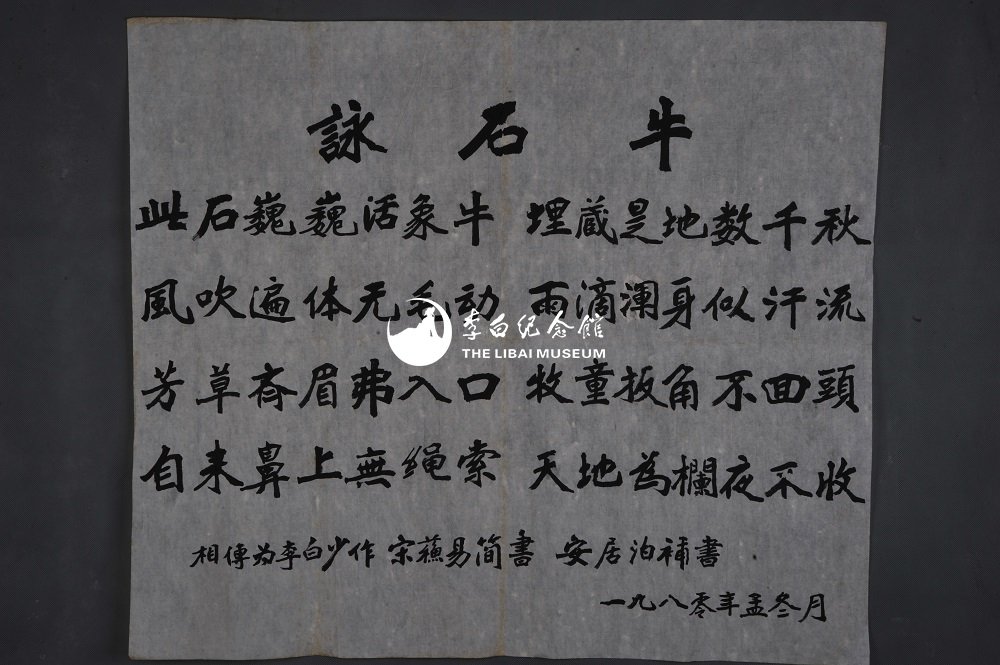 詠石牛
此石巍巍活象牛 埋蔵是地数千秋
風吹遍体无毛动 雨滴澜身似汗流
李白纪念館
THE LIBAI MUSEUM
芳草斉眉弗入口 牧童扳角不回頭
自来鼻上無绳索 天地為欄夜不收
相傳为李白少作 宋蘓易简書 安居泊補書
一九八零年孟叁月